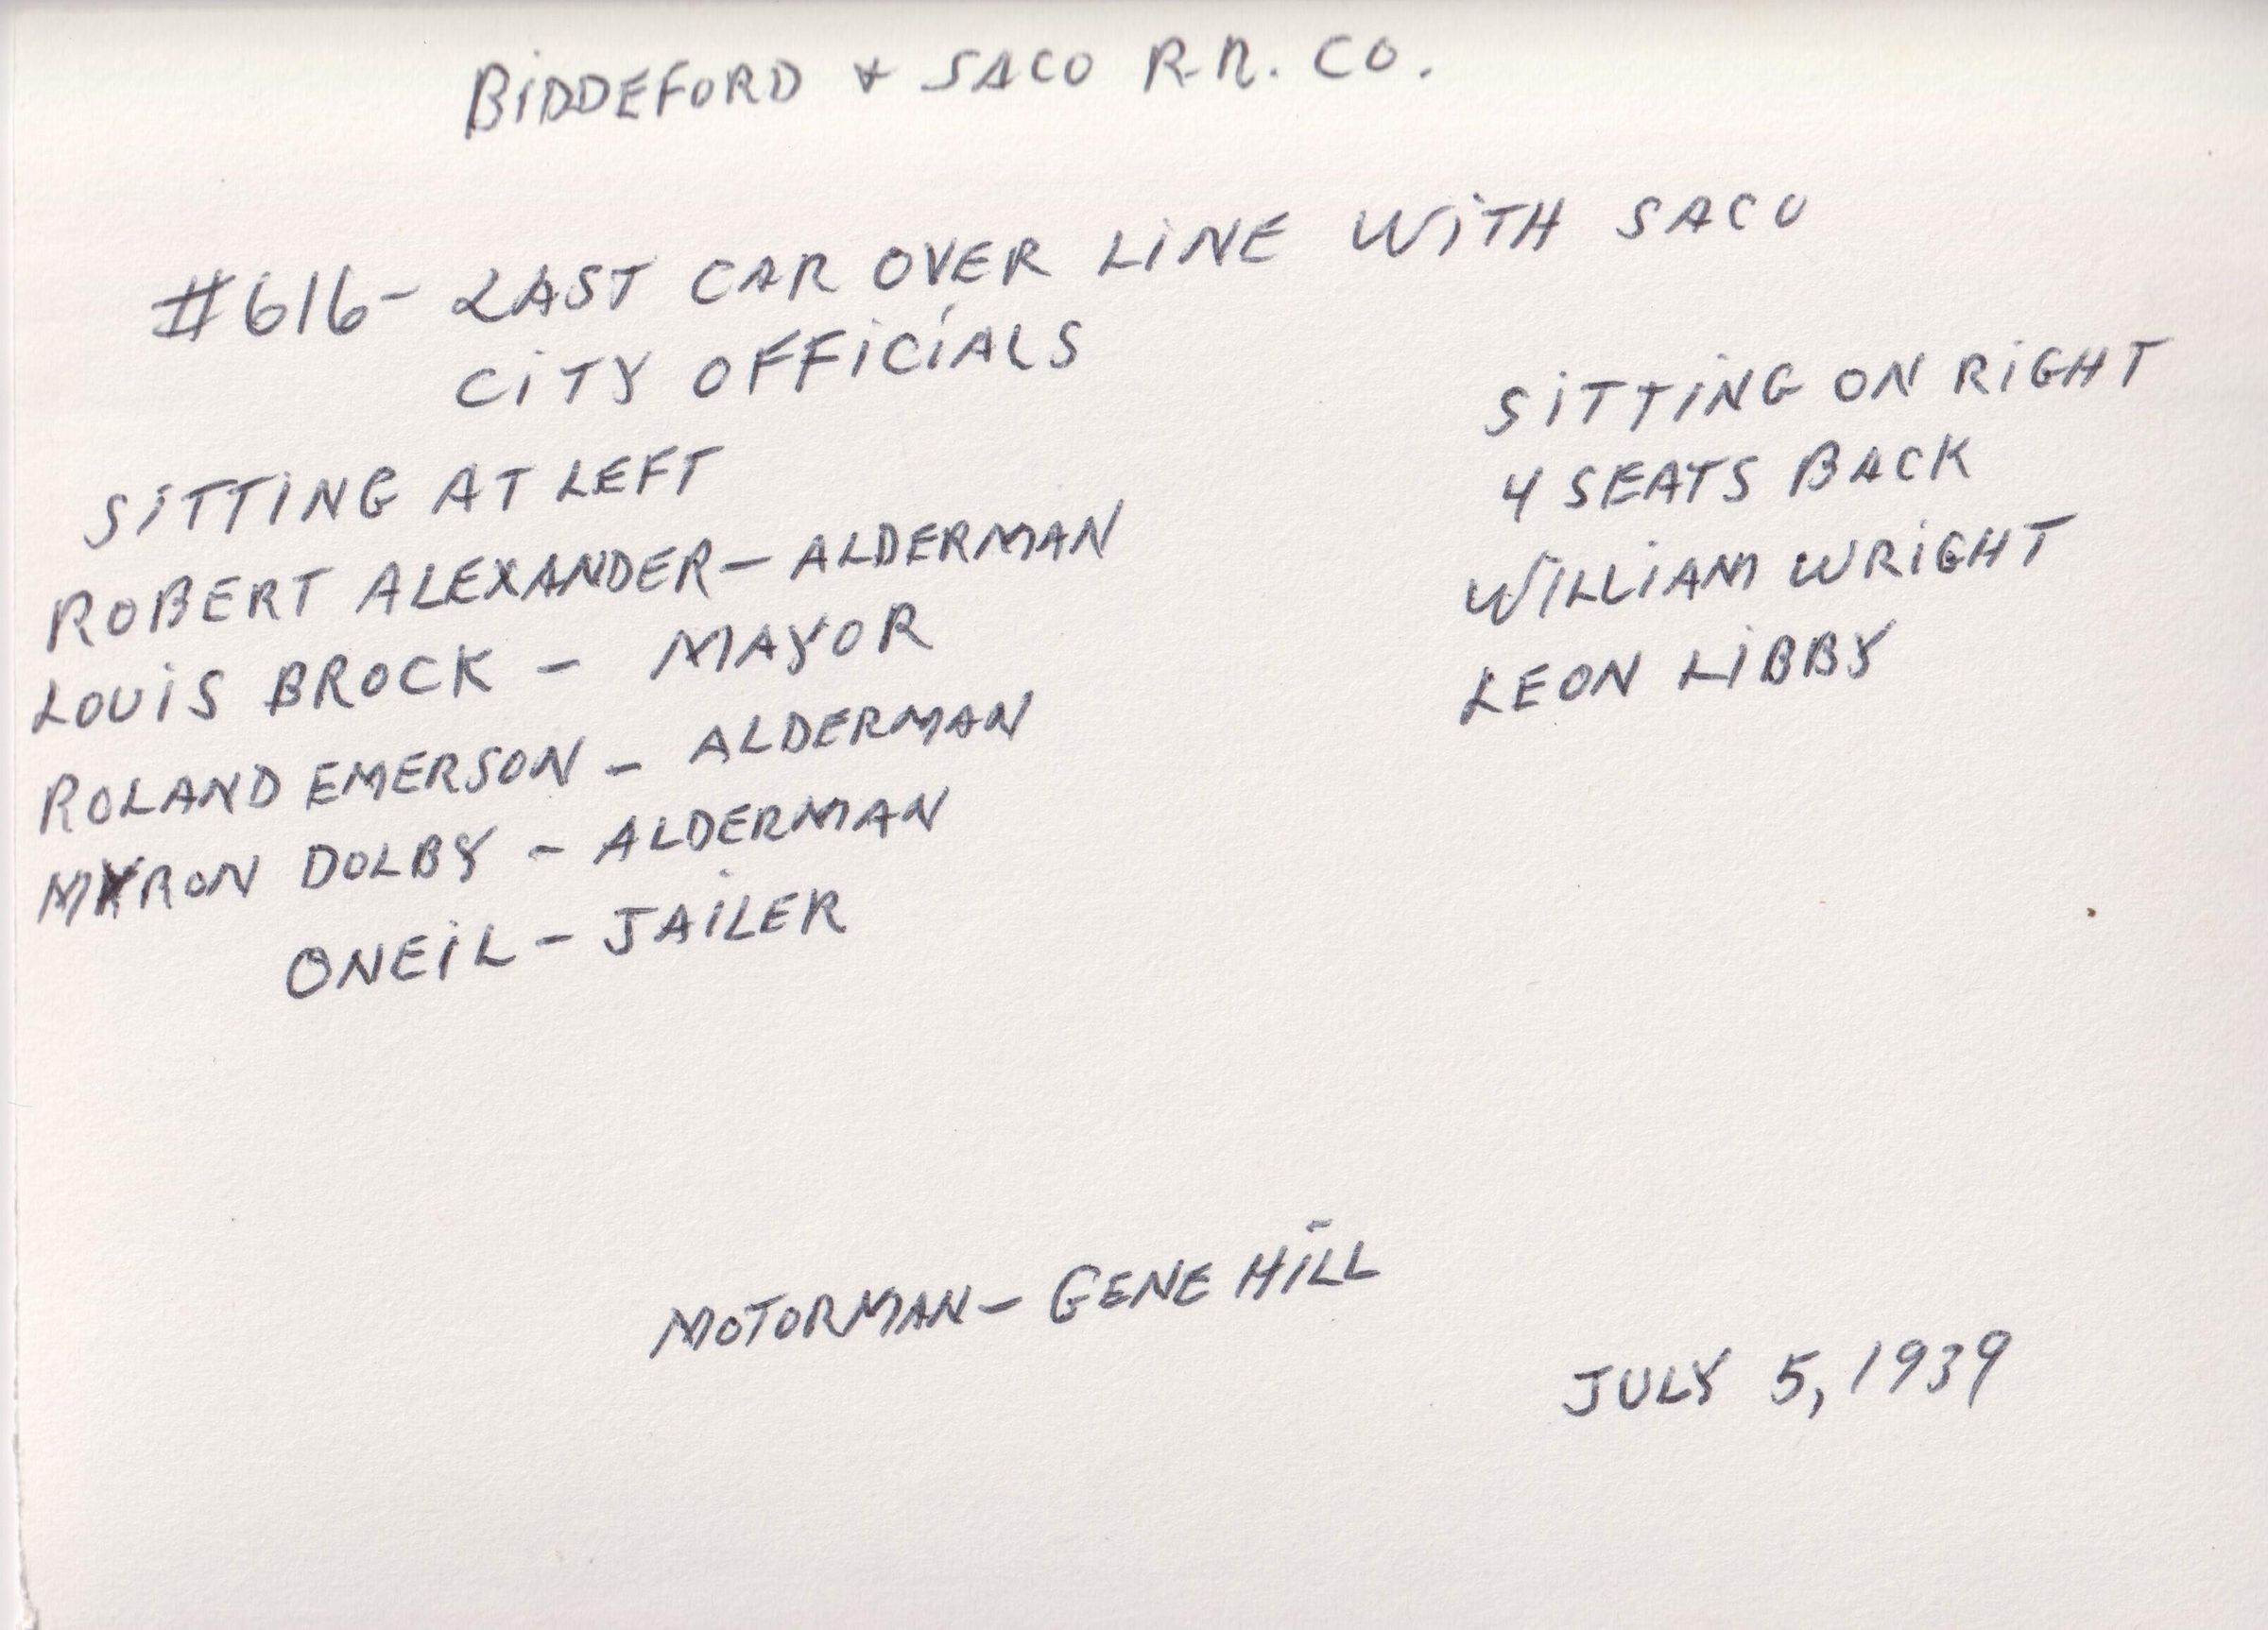 BIDDEFORD & SACO R.R. CO.
#616- LAST CAR OVER LINE WITH SACO
CITY OFFICIALS
SITTING AT LEFT
ROBERT ALEXANDER - ALDERMAN
LOUIS BROCK - MAYOR
ROLAND EMERSON - ALDERMAN
MYRON DOLBY - ALDERMAN
ONEIL - JAILER
SITTING ON RIGHT
4 SEATS BACK
WILLIAM WRIGHT
LEON LIBBY
MOTORMAN - GENE HILL
JULY 5, 1939